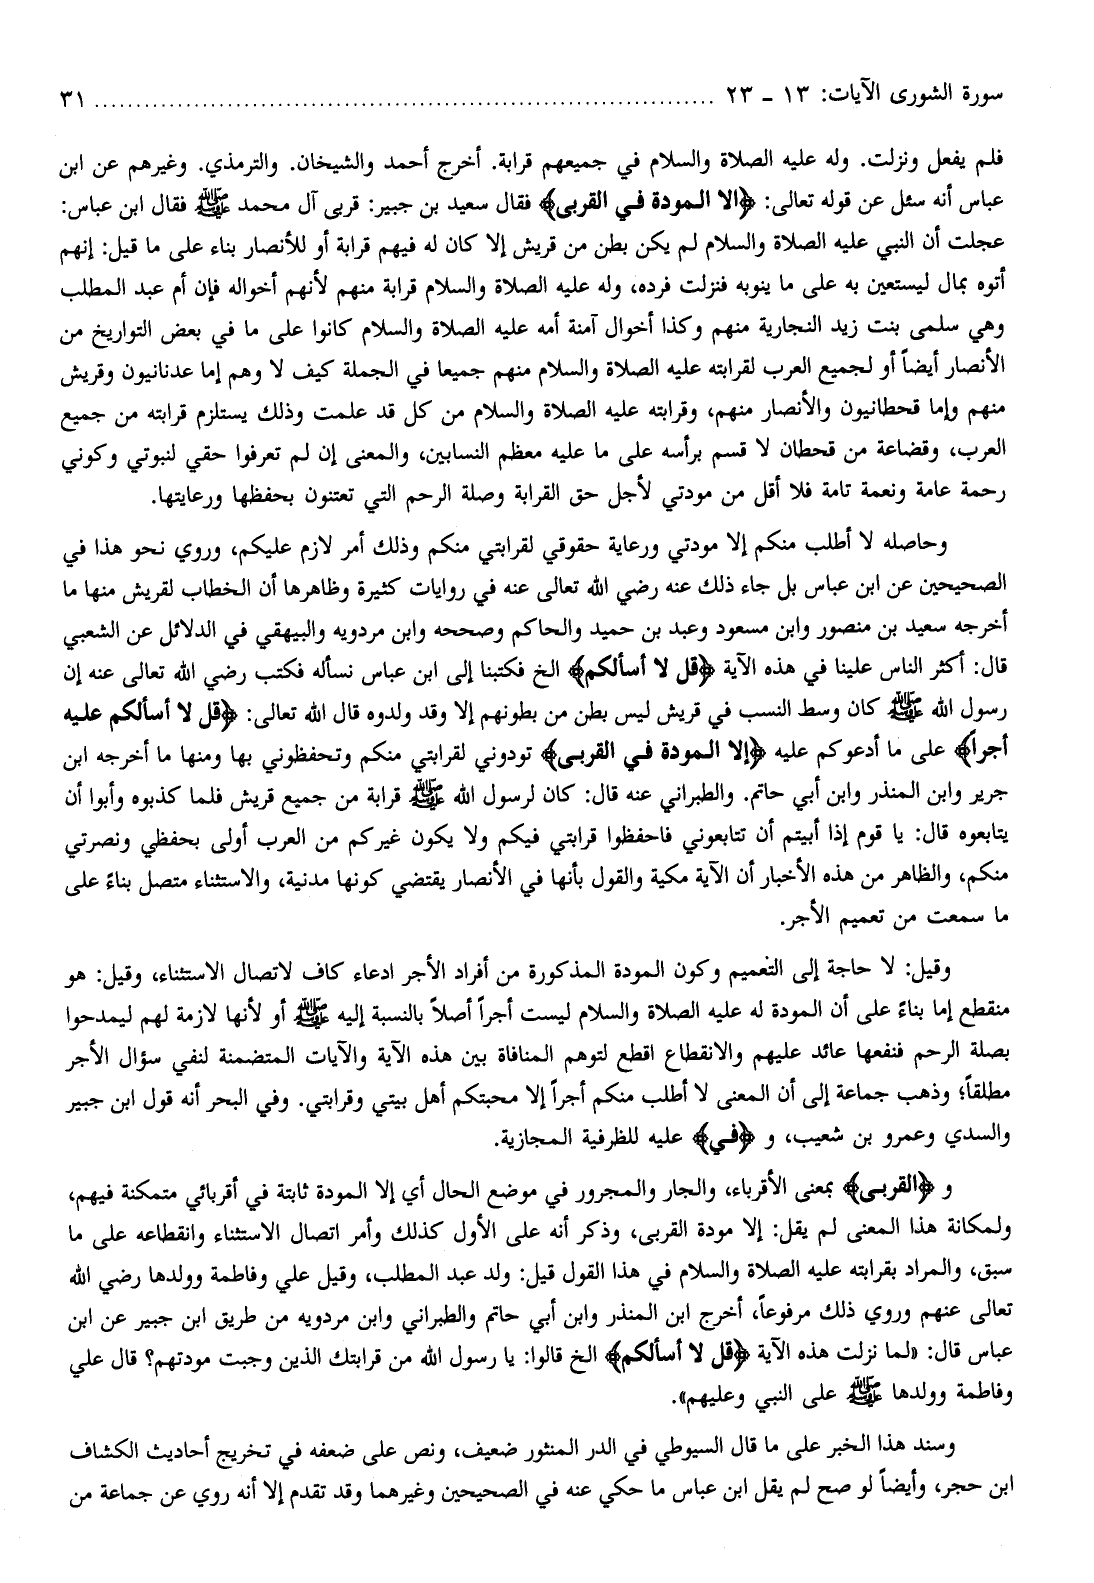 سورة الشورى الآيات: ١٣ ـ ٢٣ ........................................................................ ٣١
فلم يفعل ونزلت. وله عليه الصلاة والسلام في جميعهم قرابة. أخرج أحمد والشيخان. والترمذي. وغيرهم عن ابن
عباس أنه سئل عن قوله تعالى: ﴿الا المودة في القربى﴾ فقال سعيد بن جبير: قربى آل محمد ﷺ فقال ابن عباس:
عجلت أن النبي عليه الصلاة والسلام لم يكن بطن من قريش إلا كان له فيهم قرابة أو للأنصار بناء على ما قيل: إنهم
أتوه بمال ليستعين به على ما ينوبه فنزلت فرده، وله عليه الصلاة والسلام قرابة منهم لأنهم أخواله فإن أم عبد المطلب
وهي سلمى بنت زيد النجارية منهم وكذا أخوال آمنة أمه عليه الصلاة والسلام كانوا على ما في بعض التواريخ من
الأنصار أيضاً أو لجميع العرب لقرابته عليه الصلاة والسلام منهم جميعا في الجملة كيف لا وهم إما عدنانيون وقريش
منهم وإما قحطانيون والأنصار منهم، وقرابته عليه الصلاة والسلام من كل قد علمت وذلك يستلزم قرابته من جميع
العرب، وقضاعة من قحطان لا قسم برأسه على ما عليه معظم النسابين، والمعنى إن لم تعرفوا حقي لنبوتي وكوني
رحمة عامة ونعمة تامة فلا أقل من مودتي لأجل حق القرابة وصلة الرحم التي تعتنون بحفظها ورعايتها.
وحاصله لا أطلب منكم إلا مودتي ورعاية حقوقي لقرابتي منكم وذلك أمر لازم عليكم، وروي نحو هذا في
الصحيحين عن ابن عباس بل جاء ذلك عنه رضي الله تعالى عنه في روايات كثيرة وظاهرها أن الخطاب لقريش منها ما
أخرجه سعيد بن منصور وابن مسعود وعبد بن حميد والحاكم وصححه وابن مردويه والبيهقي في الدلائل عن الشعبي
قال: أكثر الناس علينا في هذه الآية ﴿قل لا أسألكم﴾ الخ فكتبنا إلى ابن عباس نسأله فكتب رضي الله تعالى عنه إن
رسول الله ﷺ كان وسط النسب في قريش ليس بطن من بطونهم إلا وقد ولدوه قال الله تعالى: ﴿قل لا أسألكم عليه
أجرا﴾ على ما أدعوكم عليه ﴿إلا المودة في القربى﴾ تودوني لقرابتي منكم وتحفظوني بها ومنها ما أخرجه ابن
جرير وابن المنذر وابن أبي حاتم. والطبراني عنه قال: كان لرسول الله ﷺ قرابة من جميع قريش فلما كذبوه وأبوا أن
يتابعوه قال: يا قوم إذا أبيتم أن تتابعوني فاحفظوا قرابتي فيكم ولا يكون غيركم من العرب أولى بحفظي ونصرتي
منكم، والظاهر من هذه الأخبار أن الآية مكية والقول بأنها في الأنصار يقتضي كونها مدنية، والاستثناء متصل بناءً على
ما سمعت من تعميم الأجر.
وقيل: لا حاجة إلى التعميم وكون المودة المذكورة من أفراد الأجر ادعاء كاف لاتصال الاستثناء، وقيل: هو
منقطع إما بناءً على أن المودة له عليه الصلاة والسلام ليست أجراً أصلاً بالنسبة إليه ﷺ أو لأنها لازمة لهم ليمدحوا
بصلة الرحم فنفعها عائد عليهم والانقطاع اقطع لتوهم المنافاة بين هذه الآية والآيات المتضمنة لنفي سؤال الأجر
مطلقاً؛ وذهب جماعة إلى أن المعنى لا أطلب منكم أجراً إلا محبتكم أهل بيتي وقرابتي. وفي البحر أنه قول ابن جبير
والسدي وعمرو بن شعيب، و ﴿في﴾ عليه للظرفية المجازية.
و ﴿القربى﴾ بمعنى الأقرباء، والجار والمجرور في موضع الحال أي إلا المودة ثابتة في أقربائي متمكنة فيهم،
ولمكانة هذا المعنى لم يقل: إلا مودة القربى، وذكر أنه على الأول كذلك وأمر اتصال الاستثناء وانقطاعه على ما
سبق، والمراد بقرابته عليه الصلاة والسلام في هذا القول قيل: ولد عبد المطلب، وقيل علي وفاطمة وولدها رضي الله
تعالى عنهم وروي ذلك مرفوعاً، أخرج ابن المنذر وابن أبي حاتم والطبراني وابن مردويه من طريق ابن جبير عن ابن
عباس قال: «لما نزلت هذه الآية ﴿قل لا أسألكم﴾ الخ قالوا: يا رسول الله من قرابتك الذين وجبت مودتهم؟ قال علي
وفاطمة وولدها ﷺ على النبي وعليهم».
وسند هذا الخبر على ما قال السيوطي في الدر المنثور ضعيف، ونص على ضعفه في تخريج أحاديث الكشاف
ابن حجر، وأيضاً لو صح لم يقل ابن عباس ما حكي عنه في الصحيحين وغيرهما وقد تقدم إلا أنه روي عن جماعة من